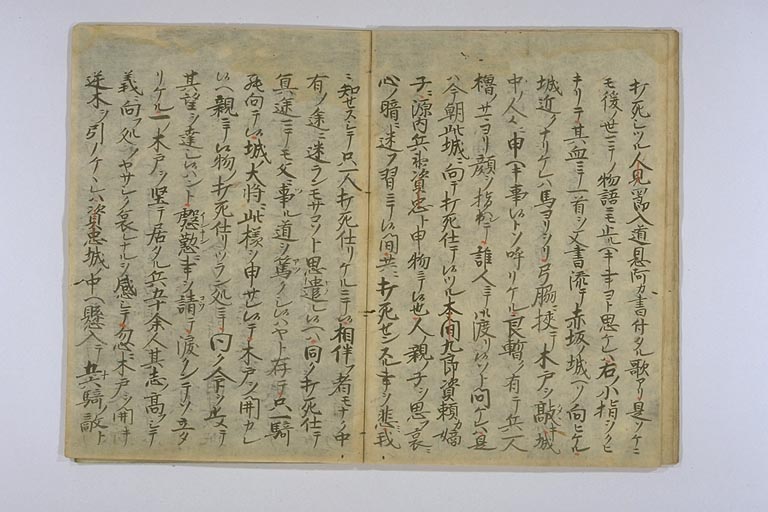 打死シツル人見四郎入道恩阿カ書付タル歌アリ是ソケニ
モ後ノ世ニテノ物語ニモ成ヘキ事ヨト思ケレハ右ノ小指ヲクヒ
キリテ其血ニテ一首ヲ文書流テ赤坂ノ城ヘソ向ヒケル
城近クナリケレハ馬ヨリヲリ弓脇ニ挟テ木戸ヲ敲城
中ノ人々ニ申ヘキ事候トソ呼リケル良暫ク有テ兵二人
櫓ノサマヨリ顔ヲ指出テ誰人ニテ御渡リ候ソト問ケレハ是
ハ今朝此城ニ向テ打死仕テ候ツル本間九郎資頼カ嫡
子ニ源内兵衛資忠ト申物ニテ候也人親ノ子ヲ思フ哀ニ
心ノ暗ニ迷フ習ニテ候間共ニ打死センスル事ヲ悲テ我
ニ知セスシテ只一人打死仕リケルニテ候相伴フ者モナク中
有ノ途ニ迷ランモサコソト思遣レ候ヘハ同ク打死仕テ
冥途ニテモ父ニ事ル道ヲ篤クシ候ハヤト存テ只一騎
死向テ候城ノ大将ニ此様ヲ申サセ候テ木戸ヲ開カレ
候ヘ親ニテ候物ノ打死仕リツラン処ニテ同ク命ヲ止メテ
其望ヲ達シ候ハント慇懃ニ事ヲ請テ涙クミテソ立タ
リケル一ノ木戸ヲ堅テ居タル兵五十余人其志高シテ
義ニ向フ処ノヤサシク哀レナルヲ感シテ忽ニ木戸ヲ開キ
逆木ヲ引ノケシカハ資忠城中ヘ懸入テ五六騎ノ敵ト